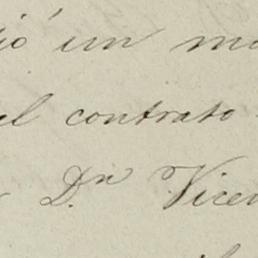 ió un mo
el contrato
Dn Vicen